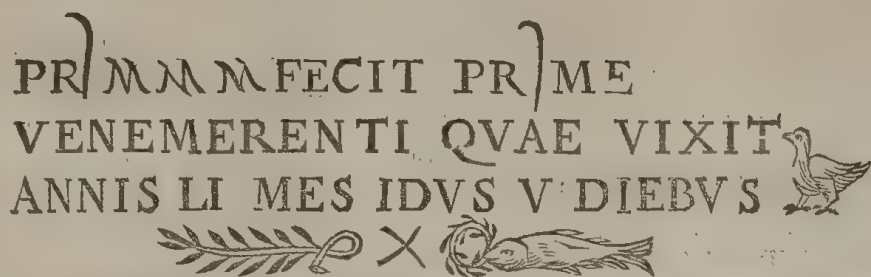 PRIMMMFECIT PRIME
VENEMERENTI QVAE VIXIT
ANNIS LI MES IDVS V DIEBVS
X